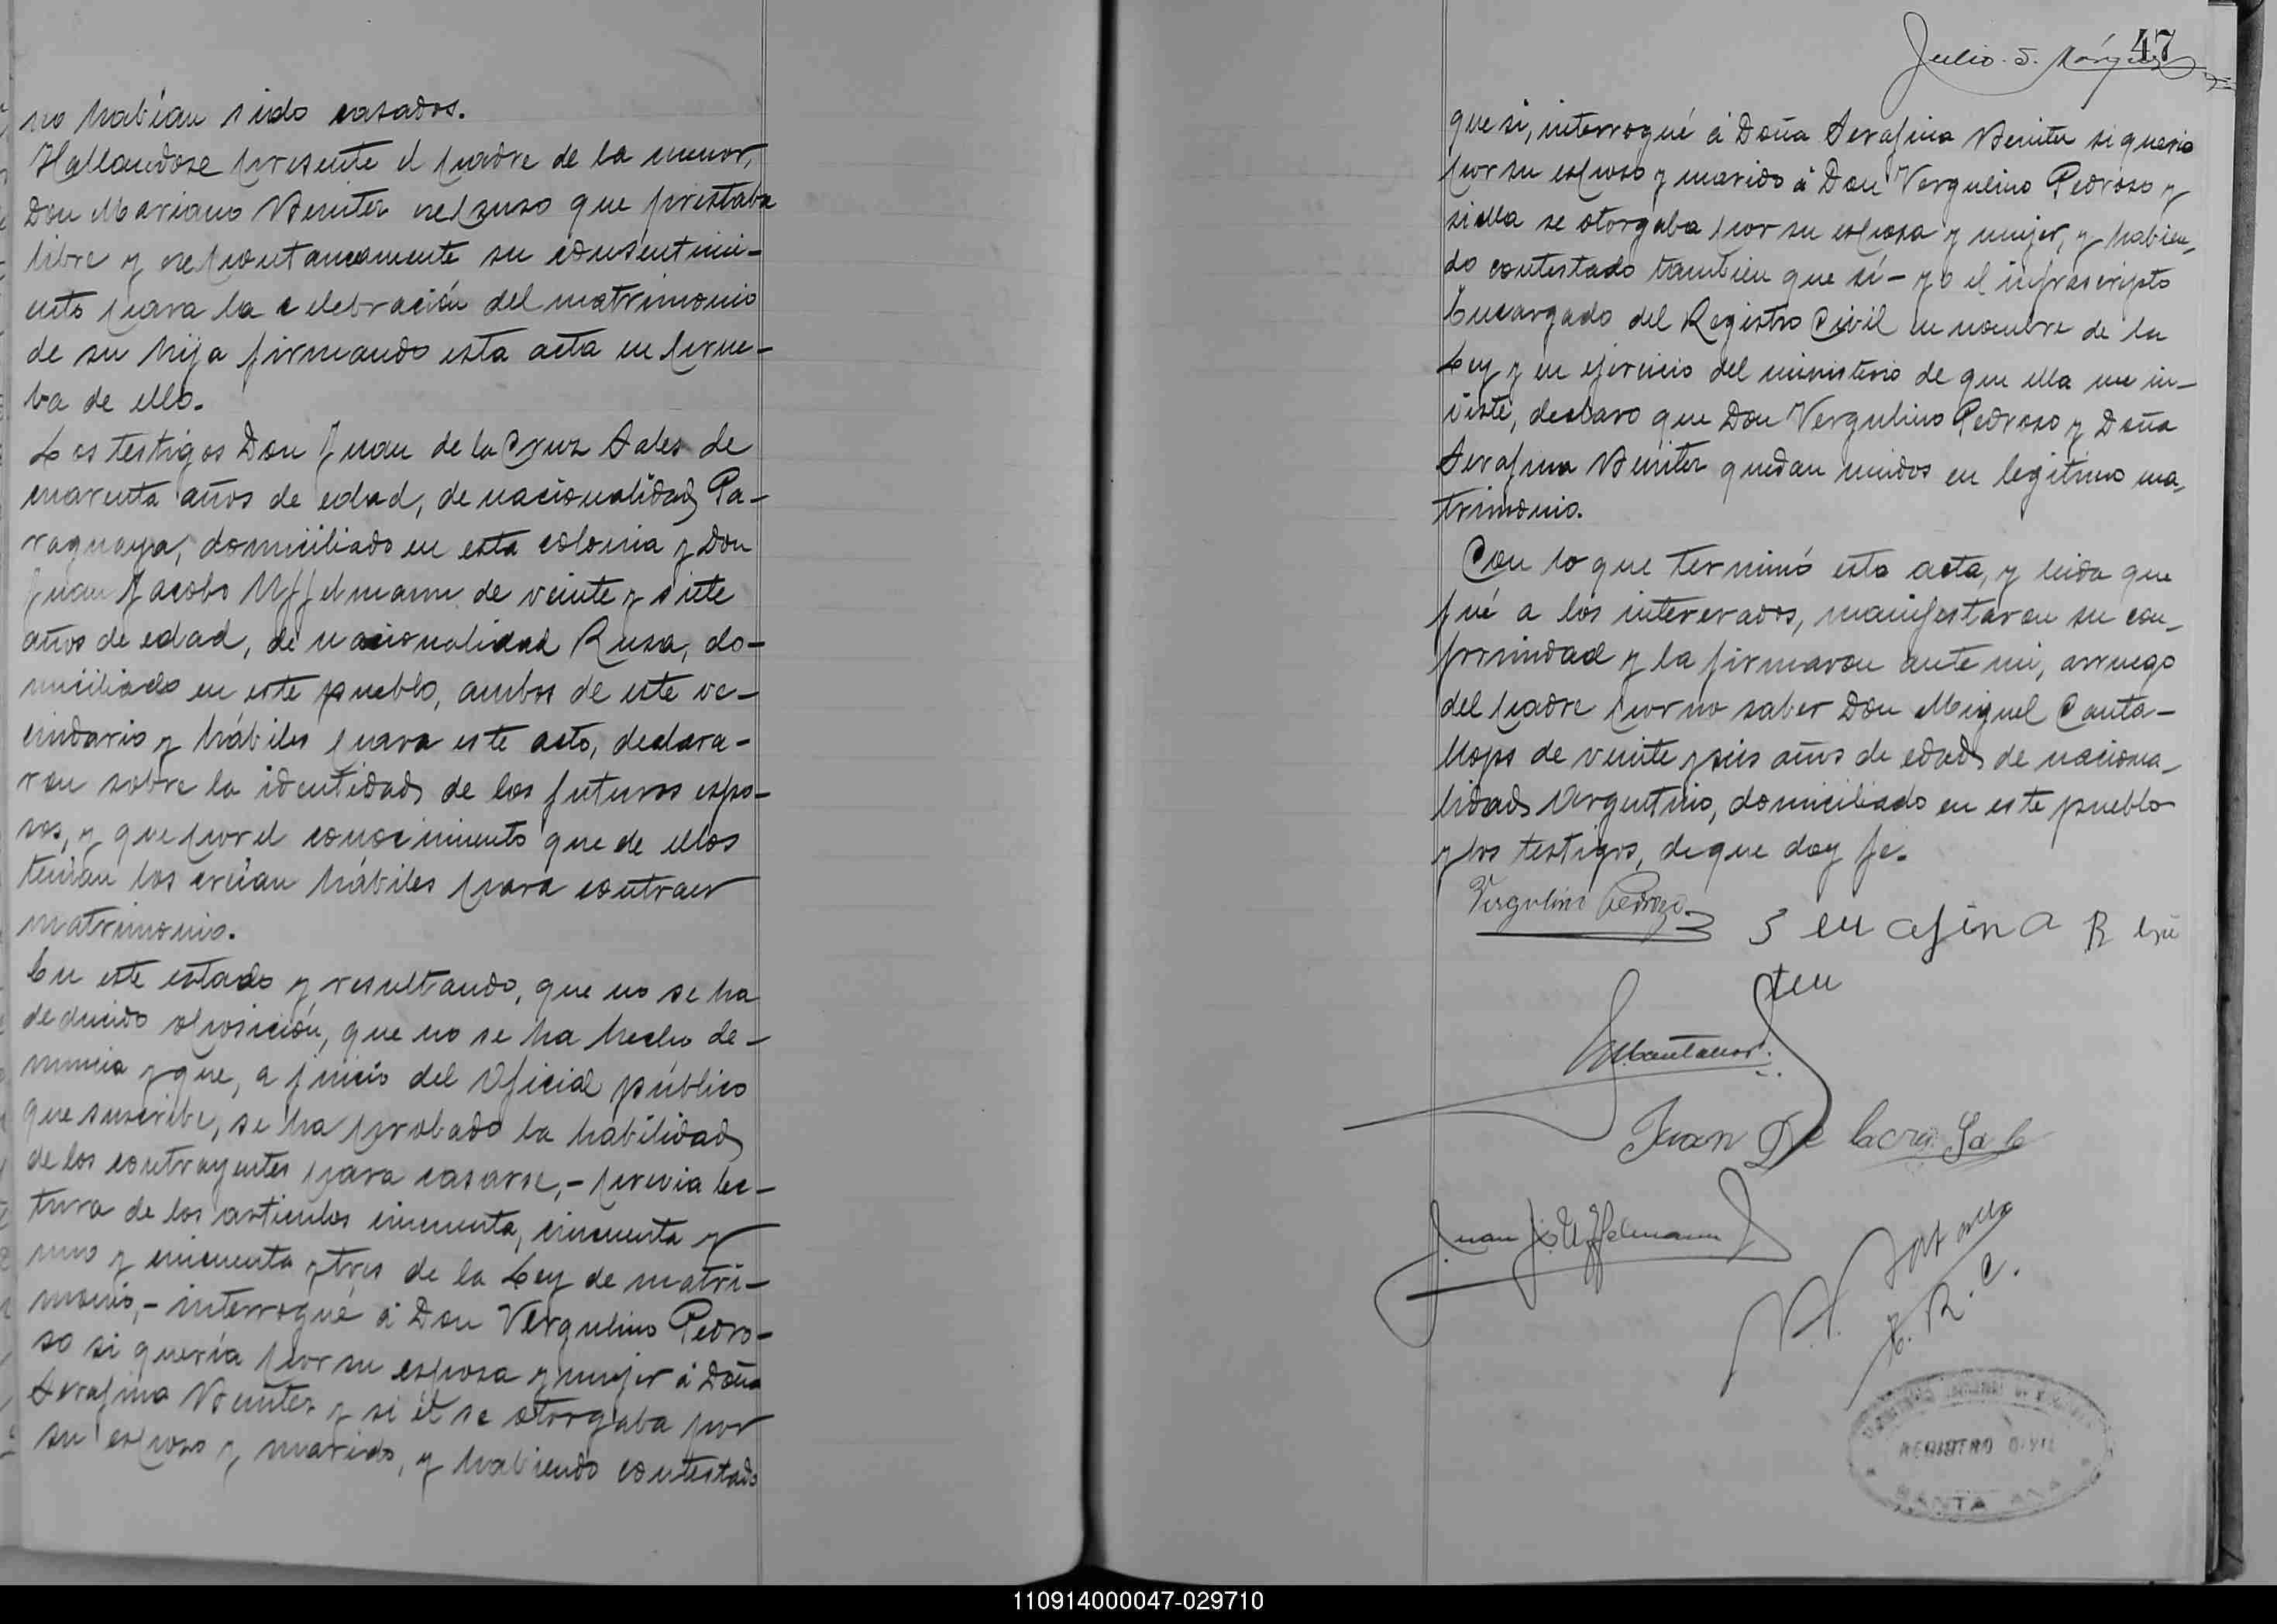 no habían sido casados.
Hallandose presente el padre de la menor,
Don Mariano Benitez expuso que prestaba
libre y espontaneamente su consentimi-
ento para la celebración del matrimonio
de su hija firmando esta acta en prue-
ba de ello.
Los testigos Don Juan de la Cruz Sales de
cuarenta años de edad, de nacionalidad Pa-
raguaya, domiciliado en esta colonia y Don
Juan Jacobo Uffelmann de veinte y siete
años de edad, de nacionalidad Rusa, do-
miciliado en este pueblo, ambos de este ve-
cindario y hábiles para este acto, declara-
ron sobre la identidad de los futuros espo-
sos, y que por el conocimiento que de ellos
tenían los creían hábiles para contraer
matrimonio.
En este estado y resultando, que no se ha
deducido oposición, que no se ha hecho de-
nuncia y que, a juicio del Oficial público
que suscribe, se ha probado la habilidad
de los contrayentes para casarse,- previa lec-
tura de los articulos cincuenta, cincuenta y
uno y cincuenta y tres de la Ley de matri-
monio,- interrogué á Don Vergulino Pedro-
so si quería por su esposa y mujer á Doña
Serafina Benitez y si él se otorgaba por
su esposo y marido, y habiendo contestado
47
Julio. S. Márquez
que si, interrogué á Doña Serafina Benitez si queria
por su esposo y marido á Don Vergulino Pedroso y
si ella se otorgaba por su esposa y mujer, y habien-
do contestado tambien que sí- yo el infrascripto
Encargado del Registro Civil en nombre de la
Ley y en ejercicio del ministerio de que ella me in-
viste, declaro que Don Vergulino Pedroso y Doña
Serafina Benitez quedan unidos en legitimo ma-
trimonio.
Con lo que terminó esta acta, y leida que
fué a los interesados, manifestaron su con-
formidad y la firmaron ante mi, arruego
del padre por no saber Don Miguel Canta-
llops de veinte y seis años de edad de naciona-
lidad Argentino, domiciliado en este pueblo
y los testigos, de que doy fé.
Vergulino Pedrozo
Serafina B
Juan De lacruz Sale
Juan J. Uffelmann
E. R. C.
REGISTRO CIVIL
SANTA ANA
110914000047-029710